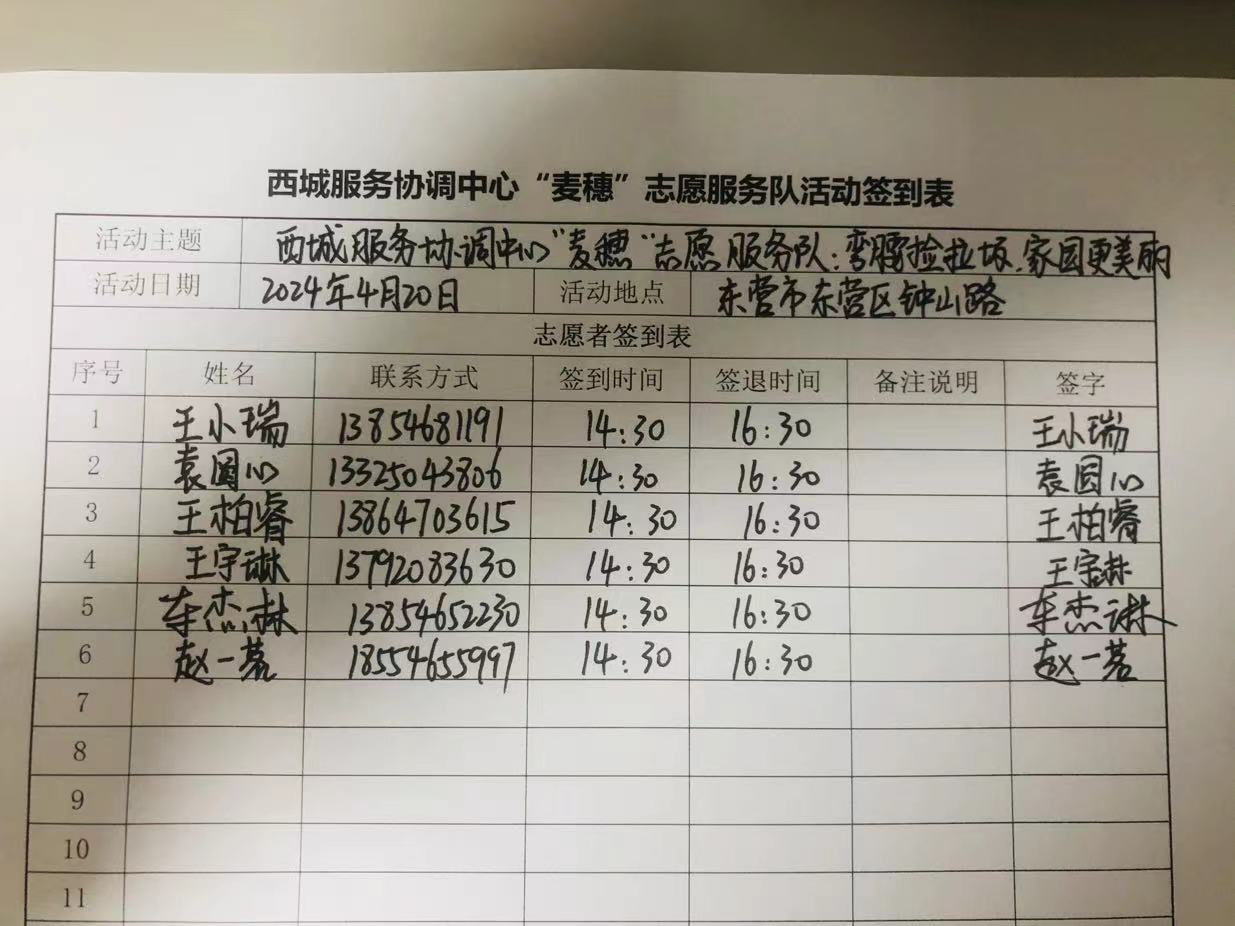 西城服务协调中心“麦穗”志愿服务队活动签到表
活动主题 西城服务协调中心“麦穗“志愿服务队:弯腰捡垃圾.家园更美丽
活动日期 2024年4月20日 活动地点 东营市东营区钟山路
志愿者签到表
序号 姓名 联系方式 签到时间 签退时间 备注说明 签字
1 王小瑞 13854681191 14:30 16:30 王小瑞
2 袁圆心 13325043806 14:30 16:30 袁圆心
3 王柏睿 13864703615 14:30 16:30 王柏睿
4 王宇琳 13792083630 14:30 16:30 王宇琳
5 车杰琳 13854652230 14:30 16:30 车杰琳
6 赵一茗 18554655997 14:30 16:30 赵一茗
7
8
9
10
11